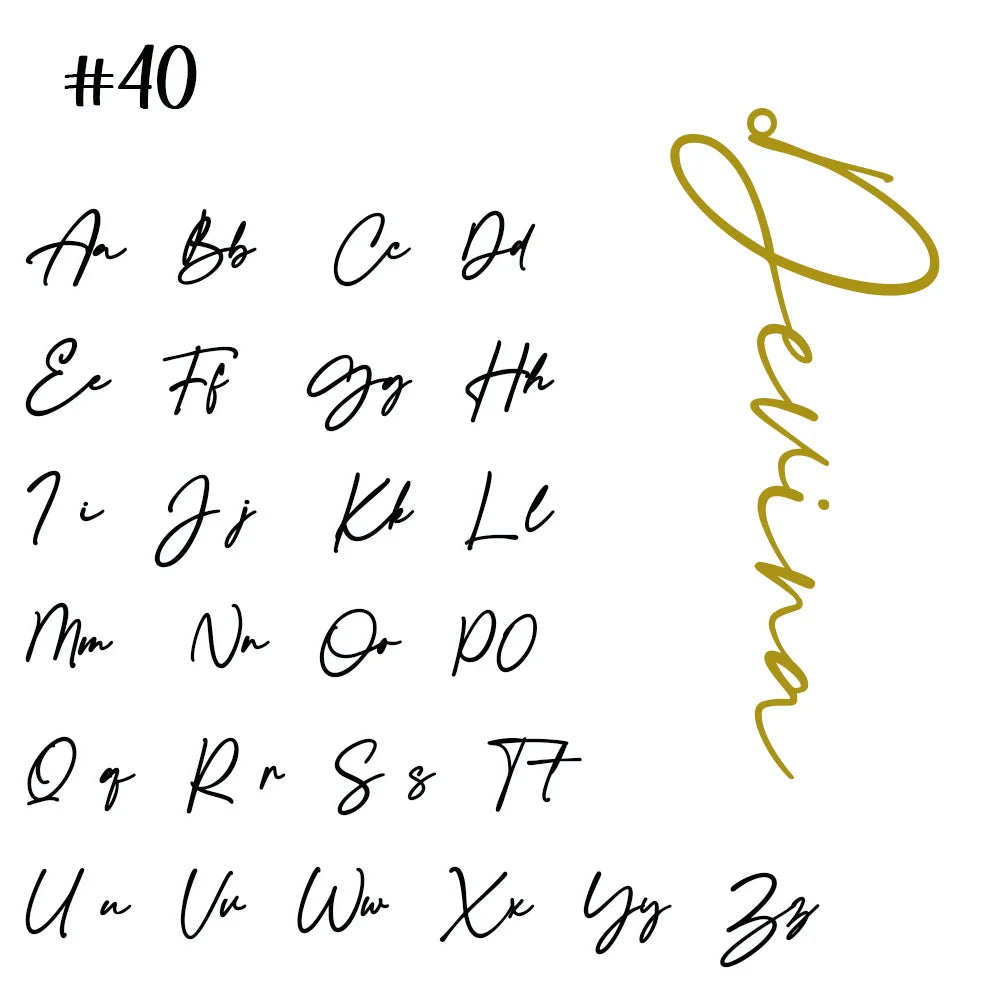 #40
Aa Bb Cc Dd
Ee Ff Gg Hh
Ii Jj Kk Ll
Mm Nn Oo PO
Qq Rr Ss TT
Uu Vv Ww Xx Yy Zz
Devina